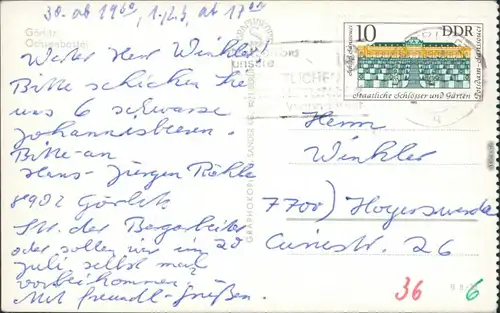 30. ab 19⁰⁰, 1., 2., 3. ab 17⁰⁰
Görlitz
Ochsenbastei
Werter Herr Winkler!
Bitte schicken Sie
uns 6 schwarze
Johannisbeeren.
Bitte an
Hans-Jürgen Röhle
8902 Görlitz
Str. der Bergarbeiter
oder sollen wir im 20
Juli selbst mal
vorbeikommen.
Mit freundl. Grüßen.
10 DDR
Potsdam-Sanssouci
Staatliche Schlösser und Gärten
Herrn
Winkler
7700) Hoyerswerda
Curiestr. 26
36 6